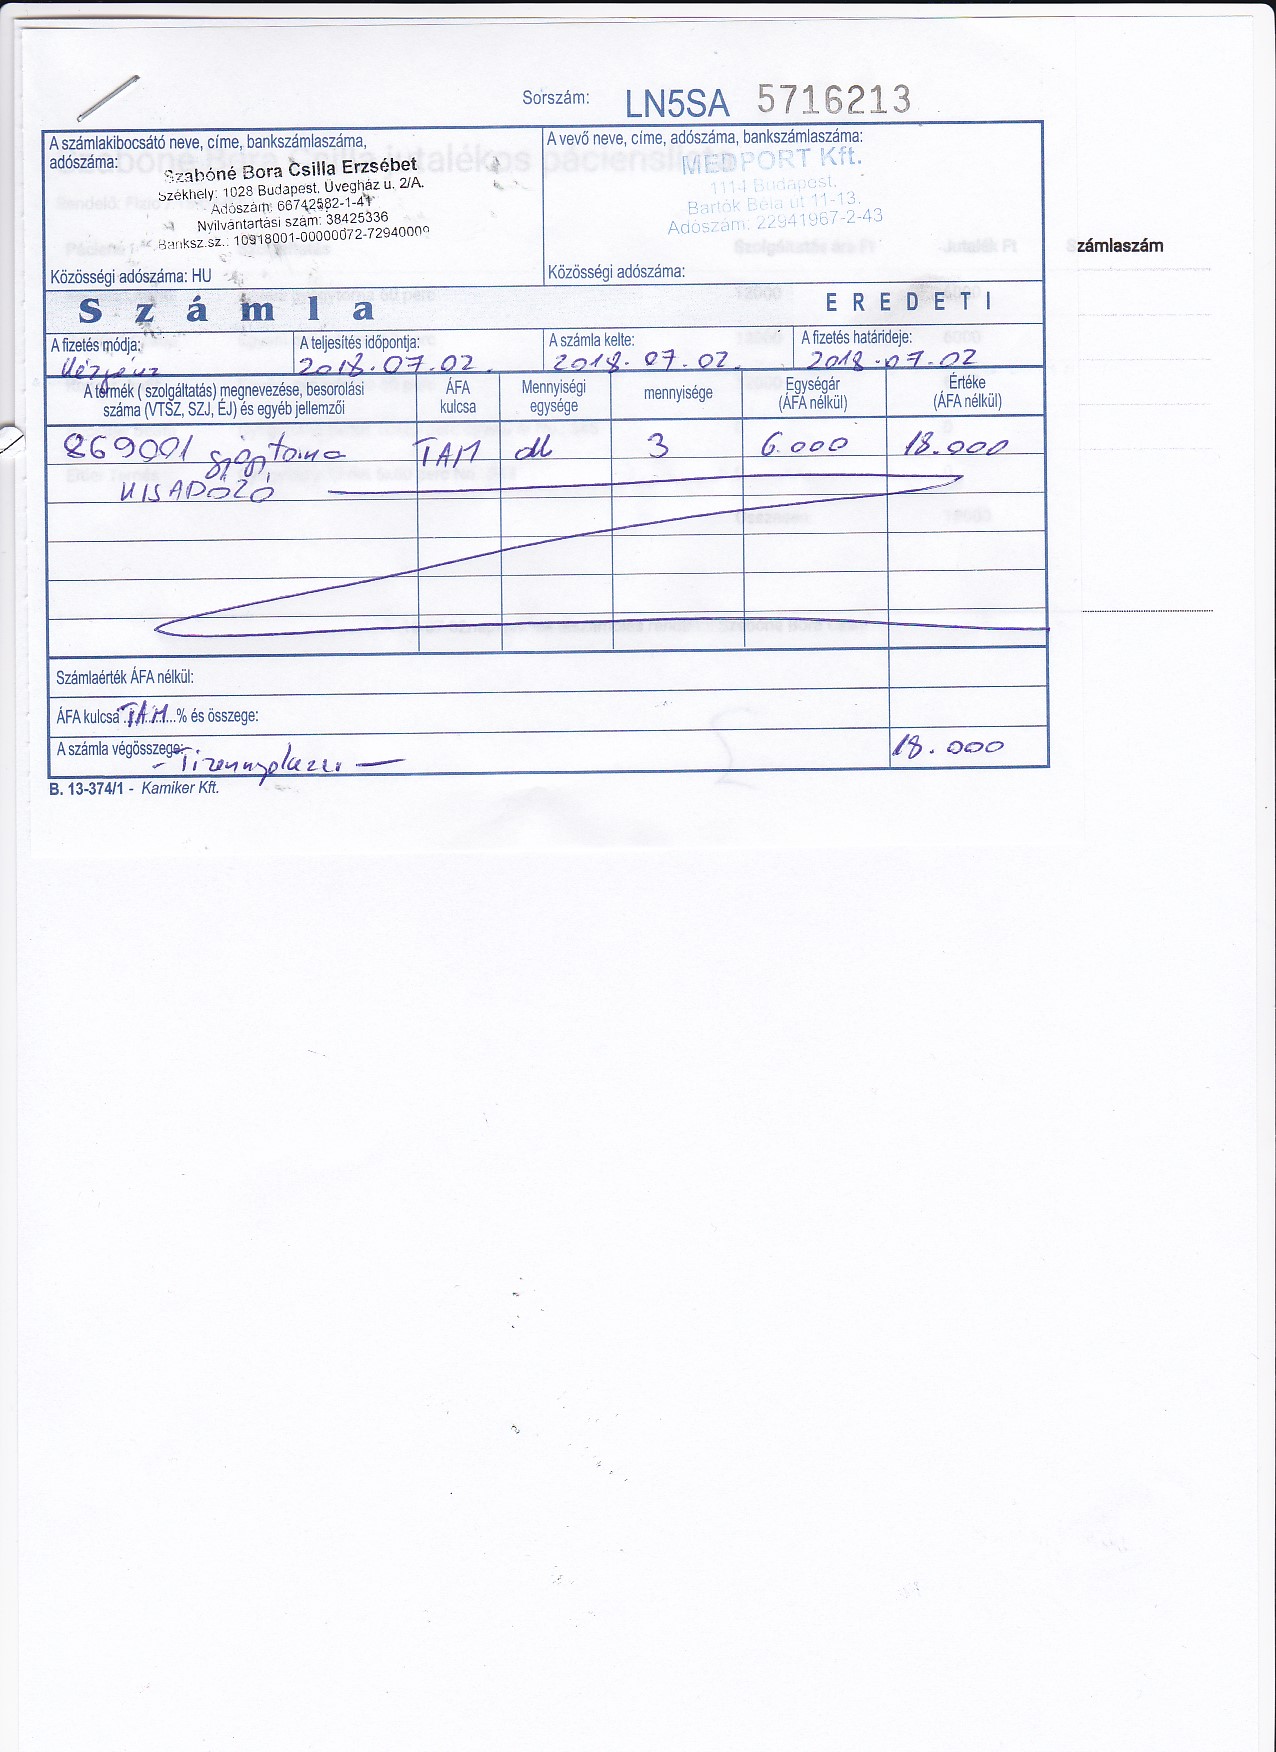 Sorszám: LN5SA 5716213
A számlakibocsátó neve, címe, bankszámlaszáma,
adószáma:
Szabóné Bora Csilla Erzsébet
Székhely: 1028 Budapest, Üvegház u. 2/A.
Adószám: 66742582-1-41
Nyilvántartási szám: 38425336
Banksz.sz.: 10918001-00000072-72940000
Közösségi adószáma: HU
A vevő neve, címe, adószáma, bankszámlaszáma:
MEDPORT Kft.
1114 Budapest,
Bartók Béla út 11-13.
Adószám: 22941967-2-43
Közösségi adószáma:
számlaszám
Számla EREDETI
A fizetés módja: Készpénz
A teljesítés időpontja: 2018.07.02.
A számla kelte: 2018.07.02.
A fizetés határideje: 2018.07.02
A termék ( szolgáltatás) megnevezése, besorolási
száma (VTSZ, SZJ, ÉJ) és egyéb jellemzői
ÁFA
kulcsa
Mennyiségi
egysége
mennyisége
Egységár
(ÁFA nélkül)
Értéke
(ÁFA nélkül)
869001 gyógytorna TAM db 3 6.000 18.000
KISADÓZÓ
Számlaérték ÁFA nélkül:
ÁFA kulcsa TAM % és összege:
A számla végösszege: 18.000
B. 13-374/1 - Kamiker Kft.